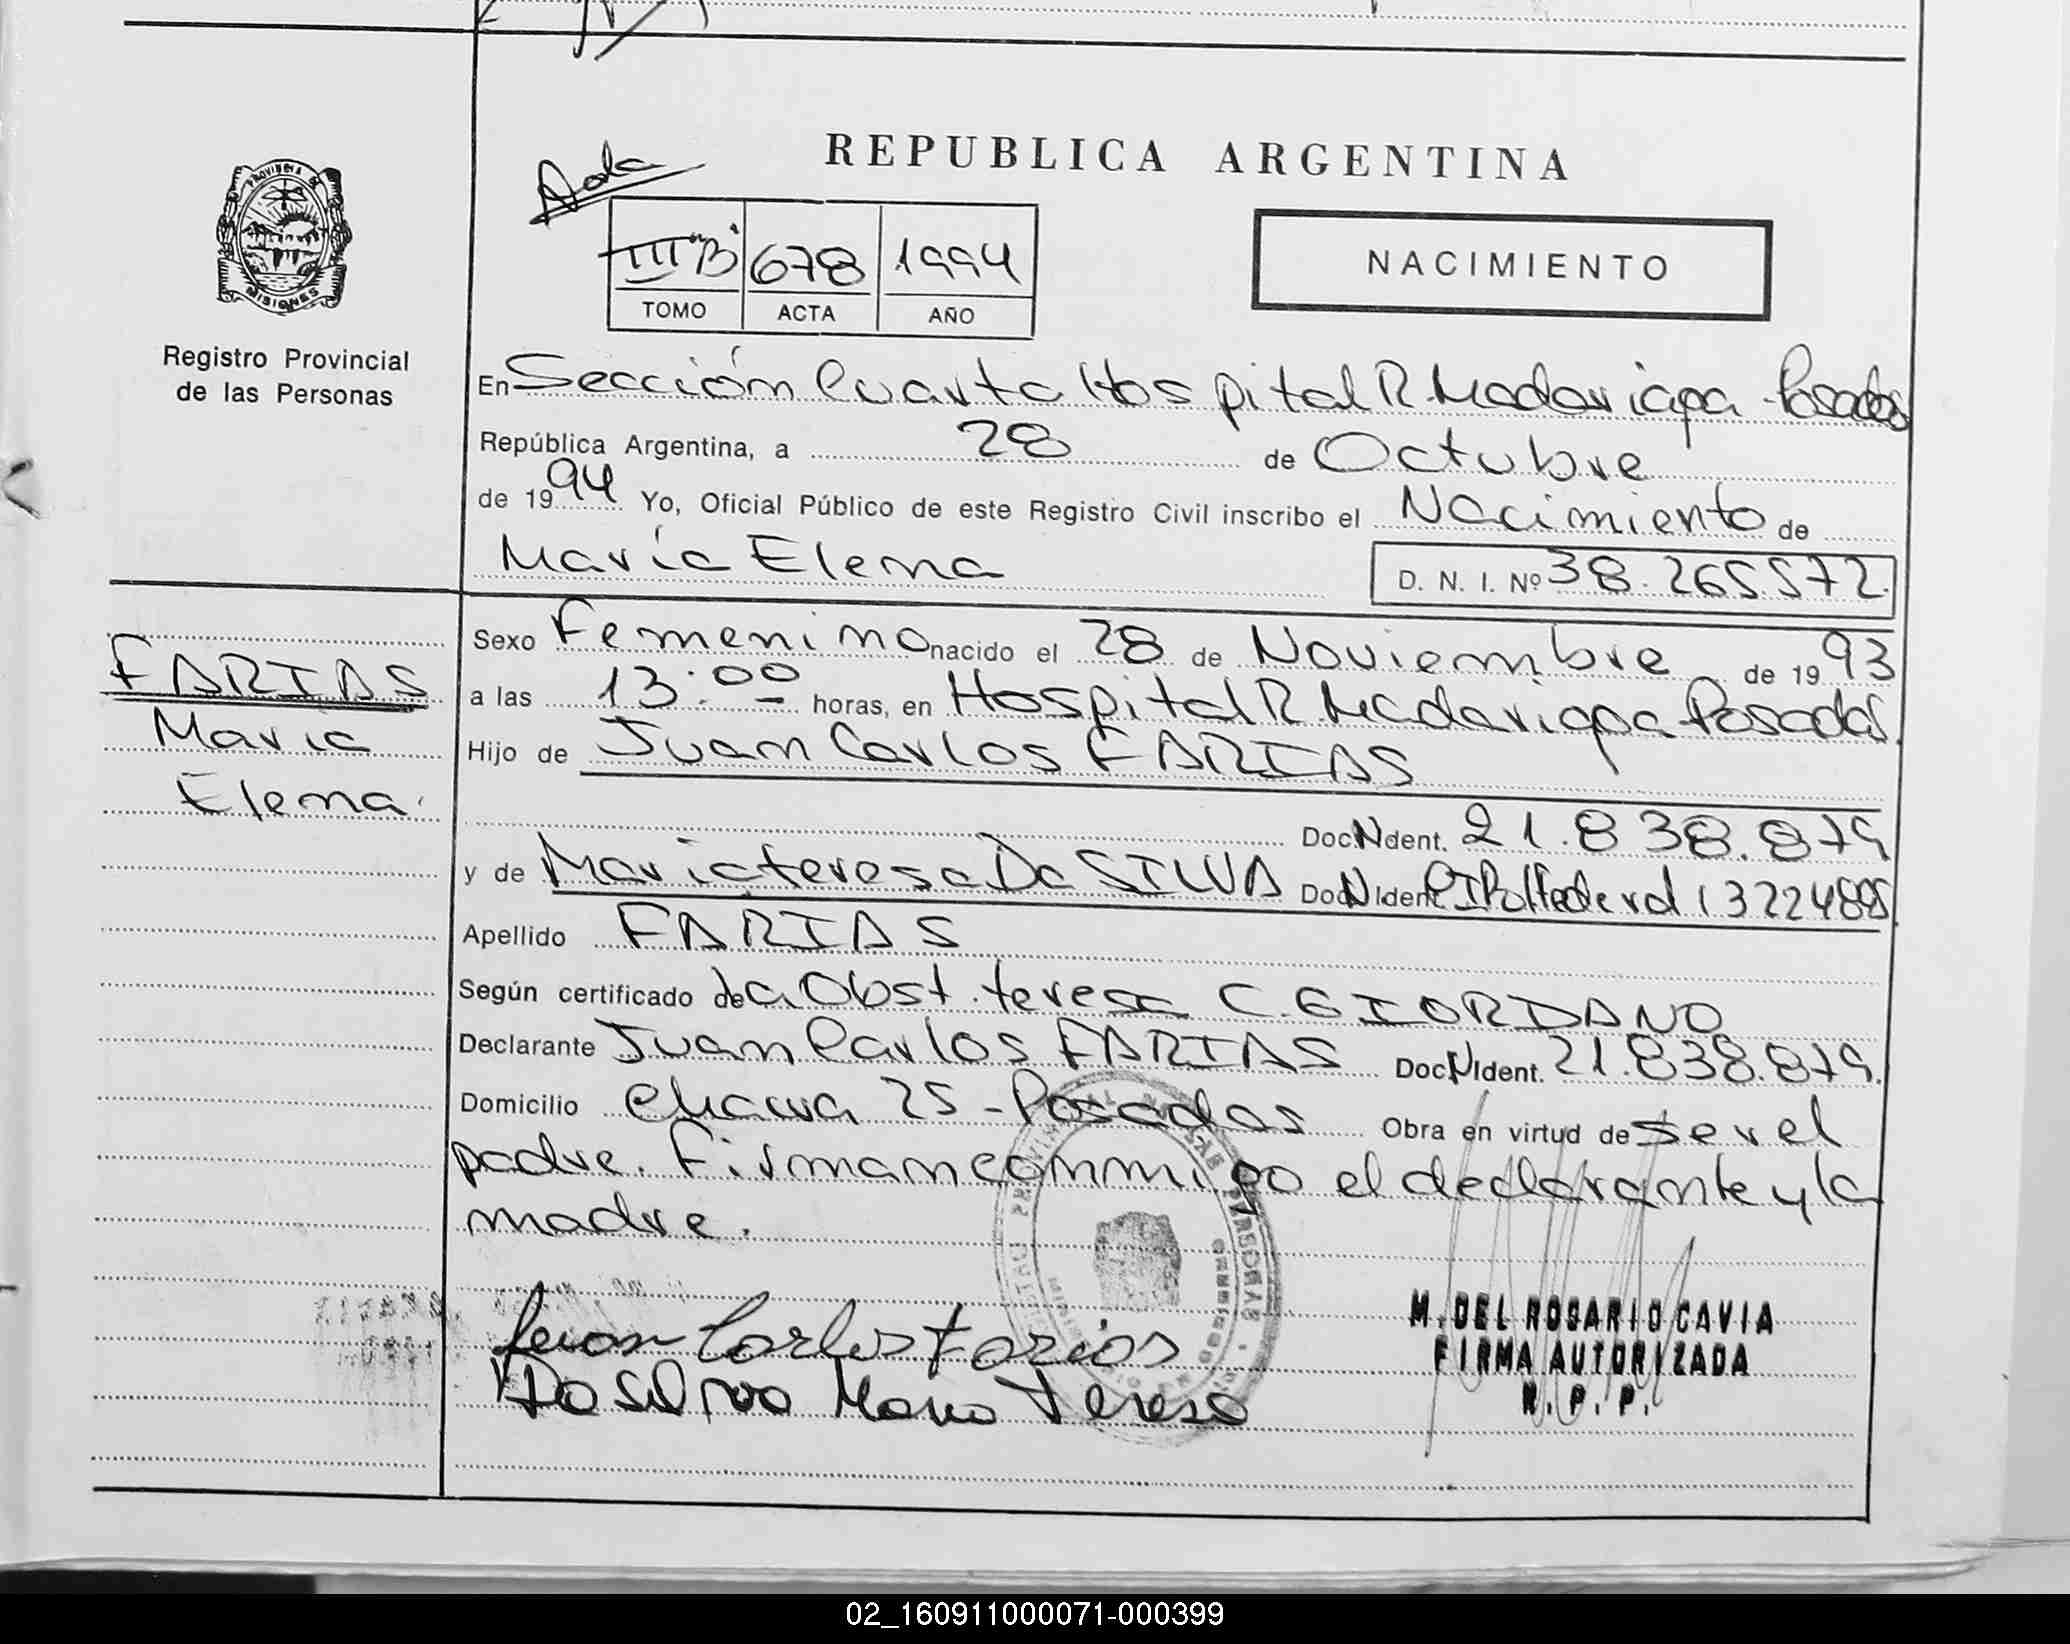 REPUBLICA ARGENTINA
PROVINCIA DE
MISIONES
Registro Provincial
de las Personas
III "B" 678 1994
TOMO ACTA AÑO
NACIMIENTO
En Sección Cuarta Hospital R. Madariaga - Posadas
República Argentina, a 28 de Octubre
de 1994 Yo, Oficial Público de este Registro Civil inscribo el Nacimiento de
María Elena D. N. I. Nº 38.265.572.
FARIAS
Maria
Elena.
Sexo Femenino nacido el 28 de Noviembre de 1993
a las 13:00 horas, en Hospital R. Madariaga Posadas.
Hijo de Juan Carlos FARIAS
Doc N Ident. 21.838.879
y de Maria teresa Da SILVA Doc N Ident. CI Pol Federal 13224898
Apellido FARIAS
Según certificado de la Obst. teresa C. GIORDANO
Declarante Juan Carlos FARIAS Doc N Ident. 21.838.879.
Domicilio Chacra 25 - Posadas Obra en virtud de ser el
padre. Firman conmigo el declarante y la
madre.
Juan Carlos Farias
Da Silva Maria Teresa
M. DEL ROSARIO CAVIA
FIRMA AUTORIZADA
R. P. P.
02_160911000071-000399